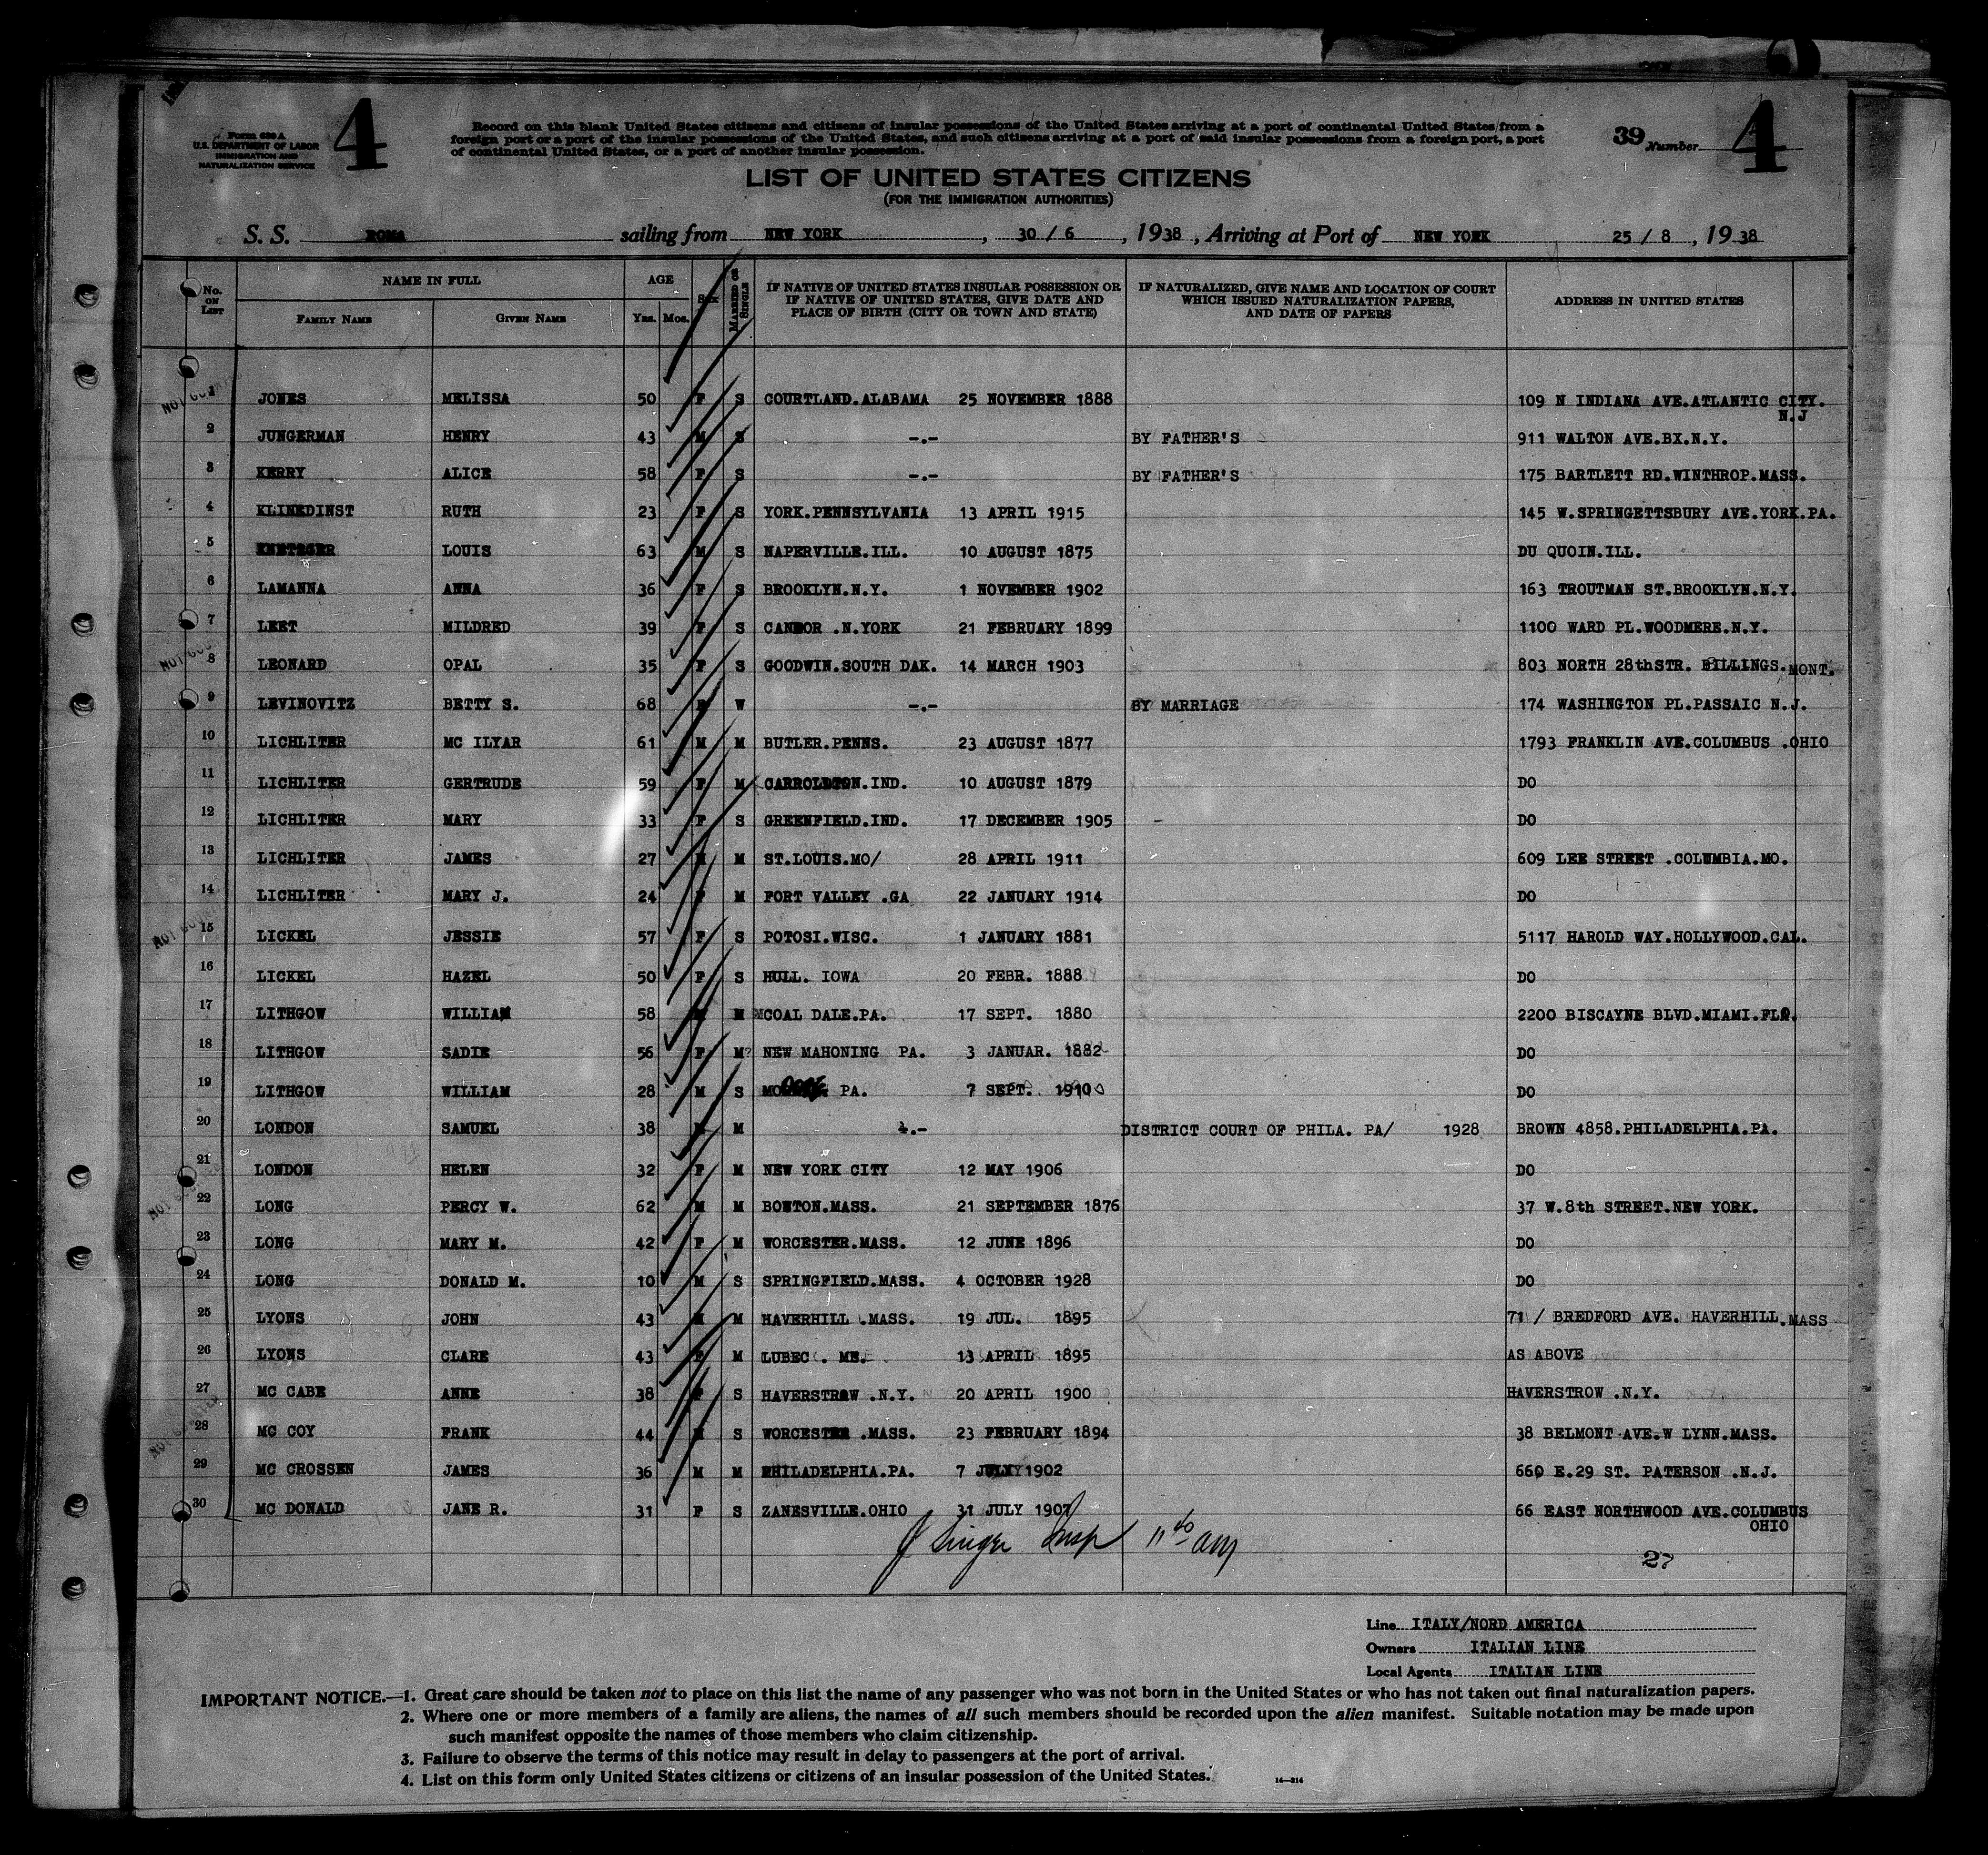 4
Form 630 A
U.S. DEPARTMENT OF LABOR
IMMIGRATION AND
NATURALIZATION SERVICE
Record on this blank United States citizens and citizens of insular possessions of the United States arriving at a port of continental United States from a
foreign port or a port of the insular possessions of the United States, and such citizens arriving at a port of said insular possessions from a foreign port, a port
of continental United States, or a port of another insular possession.
39 Number 4
LIST OF UNITED STATES CITIZENS
(FOR THE IMMIGRATION AUTHORITIES)
S. S. ROMA sailing from NEW YORK, 30 / 6, 1938, Arriving at Port of NEW YORK 25 / 8, 1938
No. ON LIST NAME IN FULL FAMILY NAME GIVEN NAME AGE Yrs. Mos. Sex MARRIED OR SINGLE IF NATIVE OF UNITED STATES INSULAR POSSESSION OR IF NATIVE OF UNITED STATES, GIVE DATE AND PLACE OF BIRTH (CITY OR TOWN AND STATE) IF NATURALIZED, GIVE NAME AND LOCATION OF COURT WHICH ISSUED NATURALIZATION PAPERS, AND DATE OF PAPERS ADDRESS IN UNITED STATES
1 JONES MELISSA 50 F S COURTLAND.ALABAMA 25 NOVEMBER 1888 109 N INDIANA AVE.ATLANTIC CITY.
N.J
2 JUNGERMAN HENRY 43 M S -.- BY FATHER'S 911 WALTON AVE.BX.N.Y.
3 KERRY ALICE 58 F S -.- BY FATHER'S 175 BARTLETT RD.WINTHROP.MASS.
4 KLINEDINST RUTH 23 F S YORK.PENNSYLVANIA 13 APRIL 1915 145 W.SPRINGETTSBURY AVE.YORK.PA.
5 LOUIS 63 M S NAPERVILLE.ILL. 10 AUGUST 1875 DU QUOIN.ILL.
6 LAMANNA ANNA 36 F S BROOKLYN.N.Y. 1 NOVEMBER 1902 163 TROUTMAN ST.BROOKLYN.N.Y.
7 LEET MILDRED 39 F S CANDOR .N.YORK 21 FEBRUARY 1899 1100 WARD PL.WOODMERE.N.Y.
8 LEONARD OPAL 35 F S GOODWIN.SOUTH DAK. 14 MARCH 1903 803 NORTH 28thSTR. BILLINGS.MONT.
9 LEVINOVITZ BETTY S. 68 F W -.- BY MARRIAGE 174 WASHINGTON PL.PASSAIC N.J.
10 LICHLITER MC ILYAR 61 M M BUTLER.PENNS. 23 AUGUST 1877 1793 FRANKLIN AVE.COLUMBUS .OHIO
11 LICHLITER GERTRUDE 59 F M CARROLLTON.IND. 10 AUGUST 1879 DO
12 LICHLITER MARY 33 F S GREENFIELD.IND. 17 DECEMBER 1905 - DO
13 LICHLITER JAMES 27 M M ST.LOUIS.MO/ 28 APRIL 1911 609 LEE STREET .COLUMBIA.MO.
14 LICHLITER MARY J. 24 F M FORT VALLEY .GA 22 JANUARY 1914 DO
15 LICKEL JESSIE 57 F S POTOSI.WISC. 1 JANUARY 1881 5117 HAROLD WAY.HOLLYWOOD.CAL.
16 LICKEL HAZEL 50 F S HULL. IOWA 20 FEBR. 1888 DO
17 LITHGOW WILLIAM 58 M M COAL DALE.PA. 17 SEPT. 1880 2200 BISCAYNE BLVD.MIAMI.FLA.
18 LITHGOW SADIE 56 F M? NEW MAHONING PA. 3 JANUAR. 1882 DO
19 LITHGOW WILLIAM 28 M S PA. 7 SEPT. 1910 DO
20 LONDON SAMUEL 38 M M -.- DISTRICT COURT OF PHILA. PA/ 1928 BROWN 4858.PHILADELPHIA.PA.
21 LONDON HELEN 32 F M NEW YORK CITY 12 MAY 1906 DO
22 LONG PERCY W. 62 M M BOSTON.MASS. 21 SEPTEMBER 1876 37 W.8th STREET.NEW YORK.
23 LONG MARY M. 42 F M WORCESTER.MASS. 12 JUNE 1896 DO
24 LONG DONALD M. 10 M S SPRINGFIELD.MASS. 4 OCTOBER 1928 DO
25 LYONS JOHN 43 M M HAVERHILL .MASS. 19 JUL. 1895 71 / BREDFORD AVE. HAVERHILL.MASS
26 LYONS CLARE 43 F M LUBEC . ME. 13 APRIL 1895 AS ABOVE
27 MC CABE ANNE 38 F S HAVERSTRAW .N.Y. 20 APRIL 1900 HAVERSTROW .N.Y.
28 MC COY FRANK 44 M S WORCESTER .MASS. 23 FEBRUARY 1894 38 BELMONT AVE.W LYNN.MASS.
29 MC CROSSEN JAMES 36 M M PHILADELPHIA.PA. 7 JULY 1902 660 E.29 ST. PATERSON .N.J.
30 MC DONALD JANE R. 31 F S ZANESVILLE.OHIO 31 JULY 1907 66 EAST NORTHWOOD AVE.COLUMBUS
OHIO
J Singer Insp 11 40 am
27
Line ITALY/NORD AMERICA
Owners ITALIAN LINE
Local Agents ITALIAN LINE
IMPORTANT NOTICE.—1. Great care should be taken not to place on this list the name of any passenger who was not born in the United States or who has not taken out final naturalization papers.
2. Where one or more members of a family are aliens, the names of all such members should be recorded upon the alien manifest. Suitable notation may be made upon
such manifest opposite the names of those members who claim citizenship.
3. Failure to observe the terms of this notice may result in delay to passengers at the port of arrival.
4. List on this form only United States citizens or citizens of an insular possession of the United States.
14—814